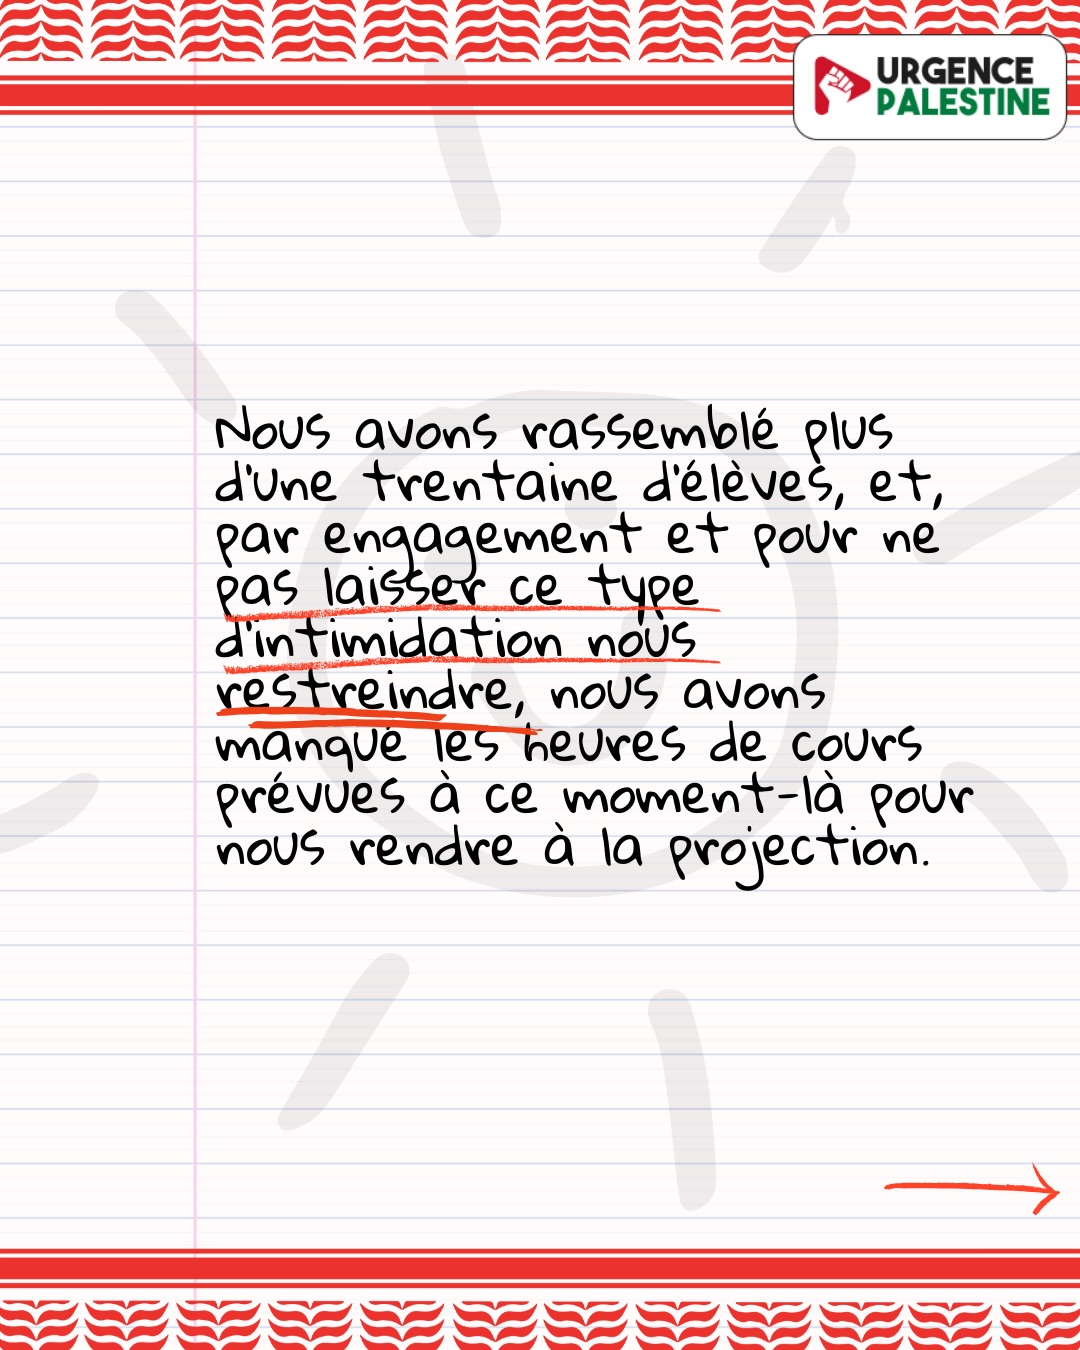 URGENCE
PALESTINE
Nous avons rassemblé plus
d'une trentaine d'élèves, et,
par engagement et pour ne
pas laisser ce type
d'intimidation nous
restreindre, nous avons
manqué les heures de cours
prévues à ce moment-là pour
nous rendre à la projection.